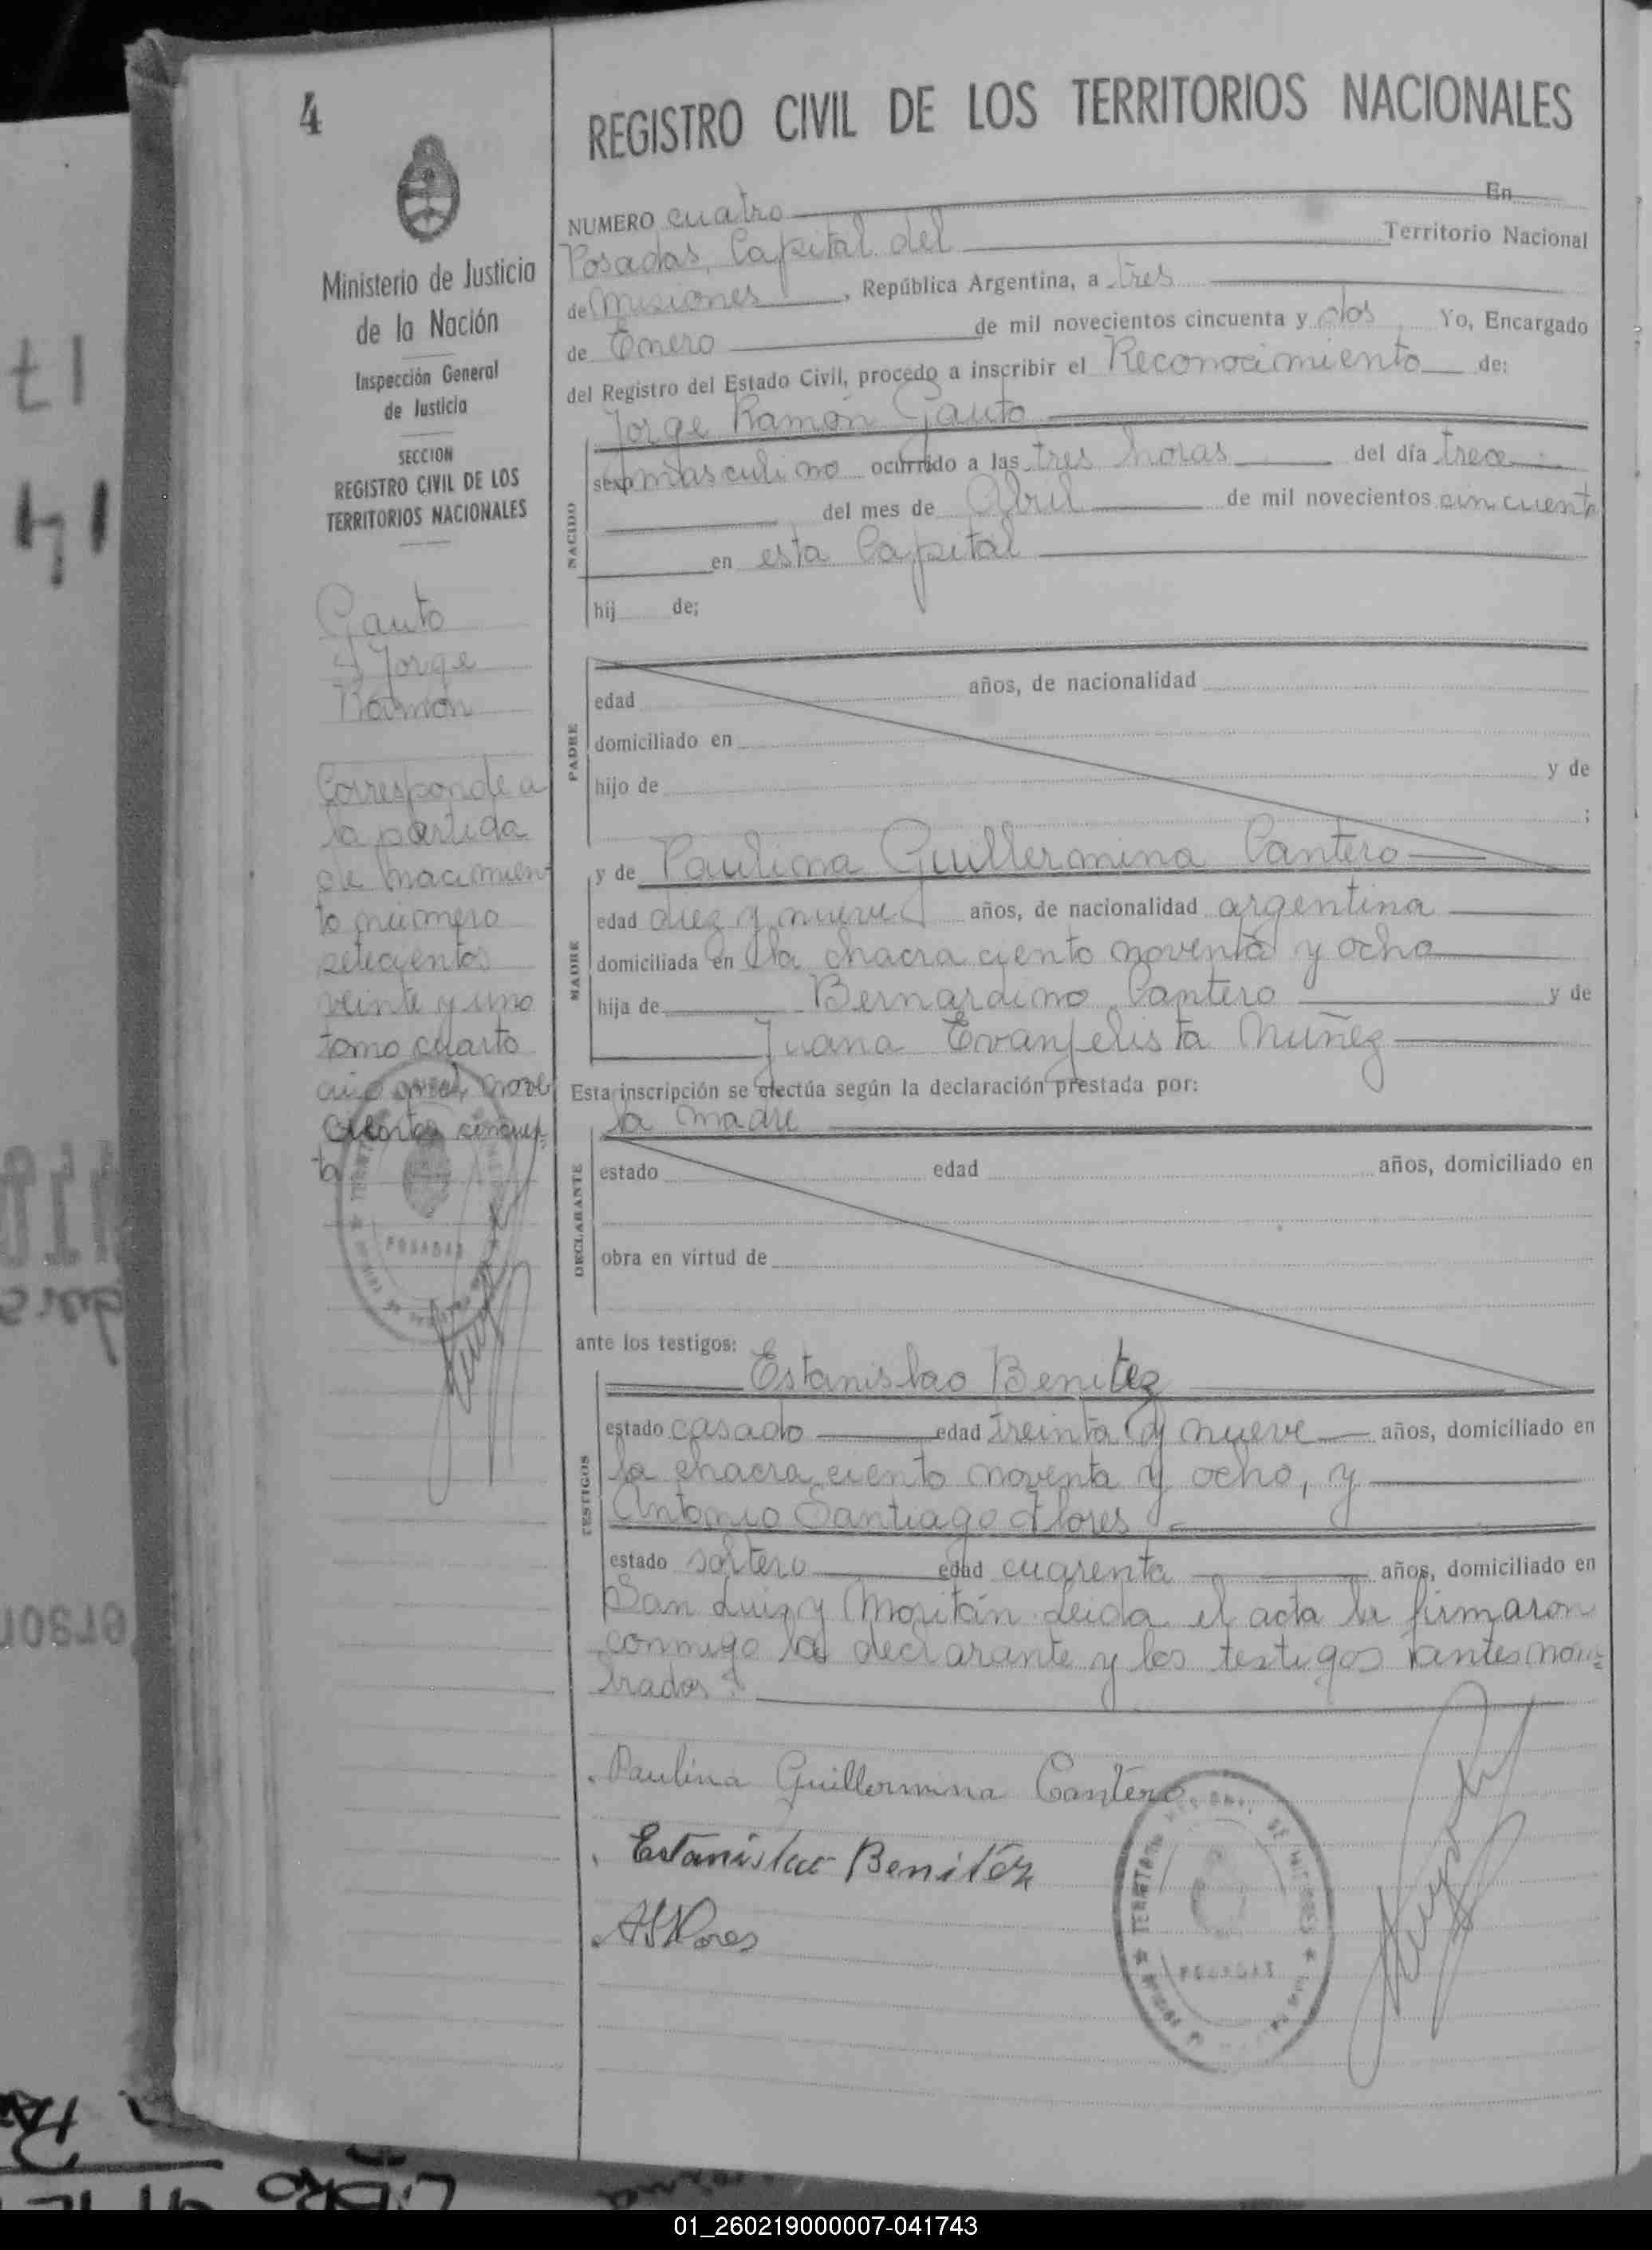 4
REGISTRO CIVIL DE LOS TERRITORIOS NACIONALES
Ministerio de Justicia
de la Nación
Inspección General
de Justicia
SECCION
REGISTRO CIVIL DE LOS
TERRITORIOS NACIONALES
Gauto
Jorge
Ramón
Corresponde a
la partida
de nacimien
to número
setecientos
veinte y uno
tomo cuarto
año mil nove
cientos cincuen
ta
POSADAS
NUMERO cuatro En
Posadas, Capital del Territorio Nacional
de Misiones, República Argentina, a tres
de Enero de mil novecientos cincuenta y dos Yo, Encargado
del Registro del Estado Civil, procedo a inscribir el Reconocimiento de:
Jorge Ramón Gauto
NACIDO
sexo masculino ocurrido a las tres horas del día trece
del mes de Abril de mil novecientos cincuenta
en esta Capital
hij de;
PADRE
edad años, de nacionalidad
domiciliado en
hijo de y de
;
MADRE
y de Paulina Guillermina Cantero
edad diez y nueve años, de nacionalidad argentina
domiciliada en la chacra ciento noventa y ocho
hija de Bernardino Cantero y de
Juana Evanjelista Núñez
Esta inscripción se efectúa según la declaración prestada por:
la madre
DECLARANTE
estado edad años, domiciliado en
obra en virtud de
ante los testigos:
Estanislao Benitez
TESTIGOS
estado casado edad treinta y nueve años, domiciliado en
la chacra ciento noventa y ocho, y
Antonio Santiago Flores
estado soltero edad cuarenta años, domiciliado en
San Luis y Moritán. Leida el acta la firmaron
conmigo la declarante y los testigos antes nom
brados
Paulina Guillermina Cantero
Estanislao Benitéz
ASFlores
POSADAS
01_260219000007-041743